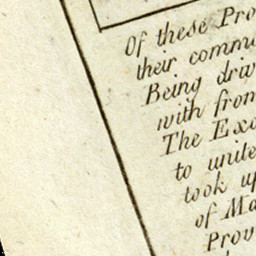 Of these Pro
their commu
Being driv
with from
The Exc
to unite
took up
of Ma
Prov